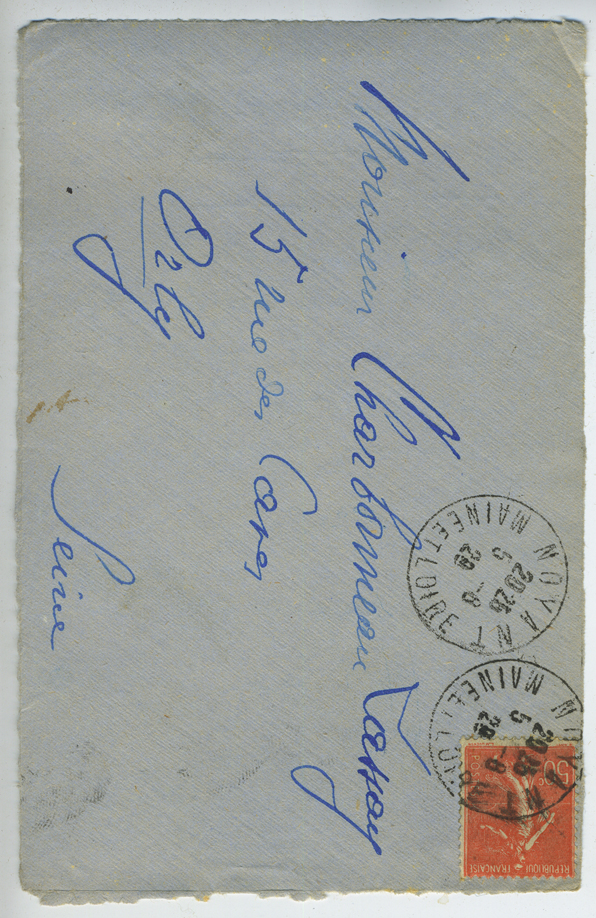 Monsieur Charbonneau Lassay
15 rue des Caves
Orly
Seine
NOYANT
MAINE ET LOIRE
20 25
5 -8
29
NOYANT
MAINE ET LOIRE
20 25
5 -8
29
50c
REPUBLIQUE FRANÇAISE